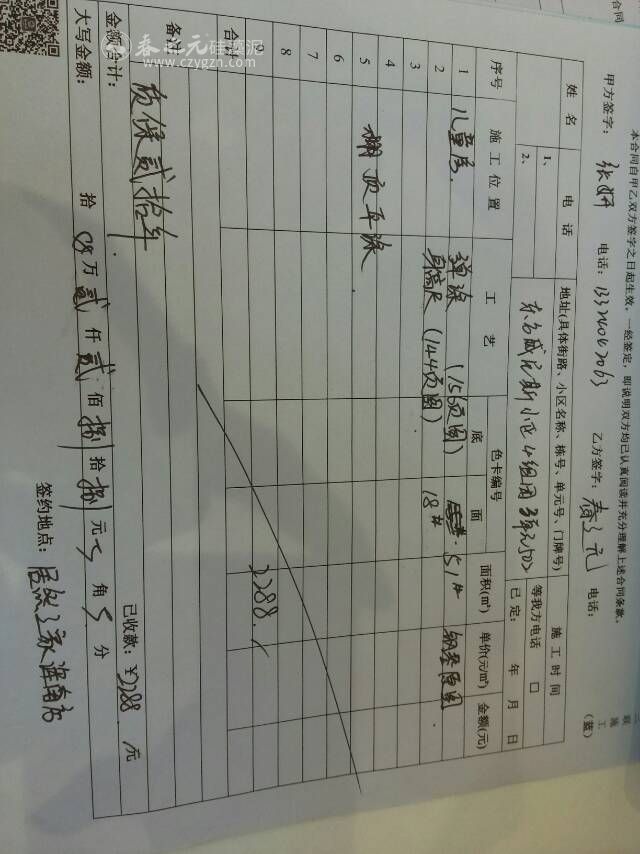 合同
本合同自甲乙双方签字之日起生效，一经签定，即说明双方均已认真阅读并充分理解上述合同条款。
甲方签字： 张妍 电话： 乙方签字：春之元 电话：
施工
(蓝)
姓名 电话 地址(具体街路、小区名称、栋号、单元号、门牌号) 施工时间
1、
2、
东方威尼斯小区4组团3单元502
等我方电话 □
已定： 年 月 日
序号 施工位置 工艺 色卡编号 面积(㎡) 单价(元/㎡) 金额(元)
底 面
1 儿童房 弹涂 (156页图) 51# 钢琴
2 身高尺 (144页图) 18#
3
4
5
6
7
8
9
合计 2288.
棚顶平涂
备注 质保贰拾年
金额合计： 已收款：¥2288 元
大写金额： 拾 万 贰 仟 贰 佰 捌 拾 捌 元 角 分
签约地点： 居然之家
春之元硅藻泥
www.czygzn.com